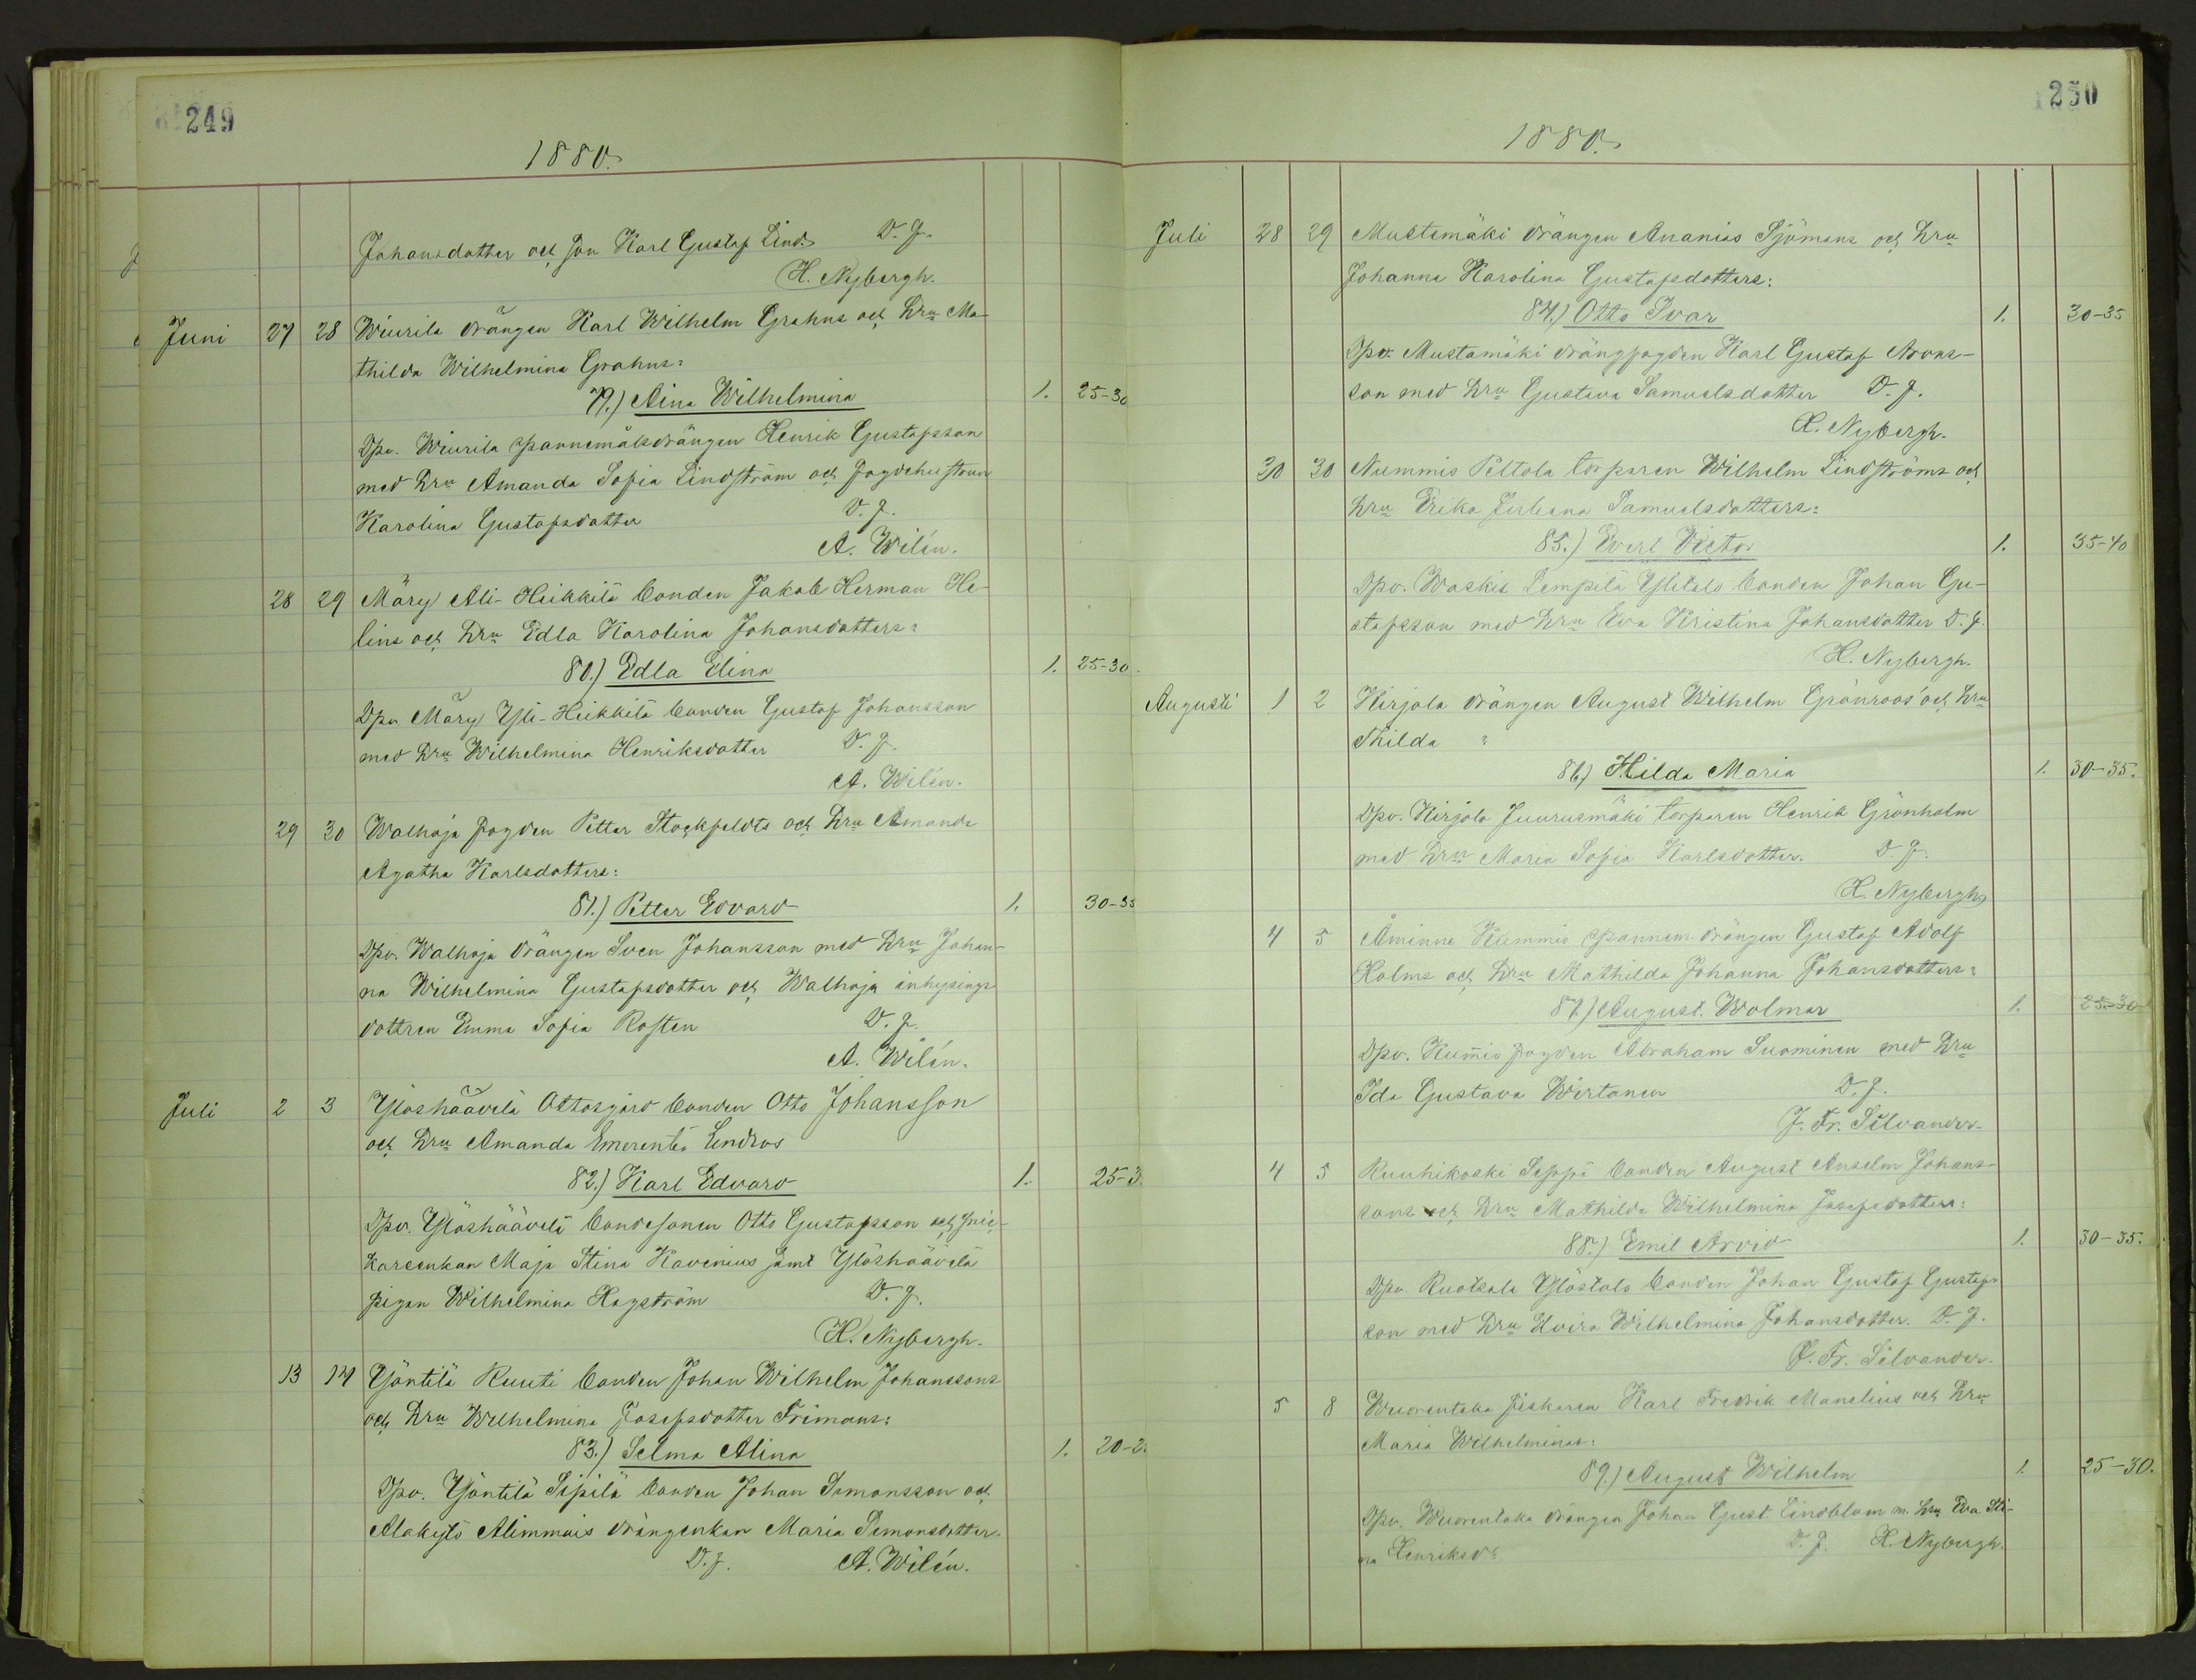 249
1880.
Johansdotter och son Karl Gustaf Lind. D. J.
H. Nybergh.
Juni 27 28 Wiurila drängen Karl Wilhelm Grahns och Hru Ma-
thilda Wilhelmina Grahns:
79.) Aina Wilhelmina 1. 25-30
Dpv. Wiurila spannemålsdrängen Henrik Gustafsson
med Hru Amanda Sofia Lindström och Fogdehustrun
Karolina Gustafsdotter D. J.
A. Wilén.
28 29 Märy Ali-Heikkilä bonden Jakob Herman He-
lins och Hru Edla Karolina Johansdotters:
80.) Edla Elina 1. 25-30.
Dpv Märy Yli-Heikkilä bonden Gustaf Johansson
med Hru Wilhelmina Henriksdotter D. J.
A. Wilén.
29 30 Walhoja fogden Petter Stockfeldts och Hru Amanda
Agatha Karlsdotters:
81.) Petter Edvard 1. 30-35
Dpv. Walhoja drängen Sven Johansson med Hru Johan-
na Wilhelmina Gustafsdotter och Walhoja inhysings
dottren Emma Sofia Rosten D. J.
A. Wilén.
Juli 2 3 Ylöshäävelä Ottosgård bonden Otto Johansson
och Hru Amanda Emerentia Lindros
82.) Karl Edvard 1. 25-3
Dpv. Ylöshäävelä bondesonen Otto Gustafsson och
karsenkan Maja Stina Kavenius samt Ylöshäävelä
pigan Wilhelmina Hagström D. J.
H. Nybergh.
13 14 Yöntilä Ruuti bonden Johan Wilhelm Johanssons
och Hru Wilhelmina Josefsdotter Frimans:
83.) Selma Alina 1. 20-2
Dpv. Yöntilä Sipilä bonden Johan Simonsson och
Alakylö Alimmais drängenkan Maria Simonsdotter.
D. J. A. Wilén.
250
1880.
Juli 28 29 Mustamäki drängen Ananias Sjömans och Hru
Johanna Karolina Gustafsdotters:
84.) Otto Ivar 1. 30-35
Dpv. Mustamäki drängfogden Karl Gustaf Arons-
son med Hru Gustava Samuelsdotter D. J.
H. Nybergh.
30 30 Nummis Peltola torparen Wilhelm Lindströms och
Hru Erika Juliana Samuelsdotters:
85.) Evert Victor 1. 35-40
Dpv. Waskis Lempilä Ylitalo bonden Johan Gu-
stafsson med Hru Eva Kristina Johansdotter D. J.
H. Nybergh.
Augusti 1 2 Kirjola drängen August Wilhelm Grönroos' och Hru
Thilda :
86.) Hilda Maria 1. 30-35.
Dpv. Kirjola Juurusmäki torparen Henrik Grönholm
med Hru Maria Sofia Karlsdotter. D. J.
H. Nybergh
4 5 Åminne Kummis spannem. drängen Gustaf Adolf
Holms och Hru Mathilda Johanna Johansdotters:
87.) August Wolmar 1. 25-30
Dpv. Kum̄is fogden Abraham Suominen med Hru
Ida Gustava Wirtanen D. J.
J. Fr. Silvander.
4 5 Ruuhikoski Seppä bonden August Anselm Johans-
sons och Hru Mathilda Wilhelmina Josefsdotters:
88.) Emil Arvid 1. 30-35.
Dpv Ruotsala Ylöstalo bonden Johan Gustaf Gustafs-
son med Hru Lovisa Wilhelmina Johansdotter. D. J.
J. Fr. Silvander.
5 8 Wuorentaka fiskaren Karl Fredrik Manelius och Hru
Maria Wilhelminas:
89.) August Wilhelm 1. 25-30.
Dpv. Wuorentaka drängen Johan Gust. Lindblom m. Hru Eva Sti-
na Henriksdr D. J. H. Nybergh.